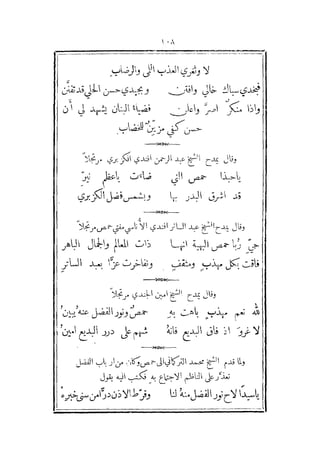 ١٠٨
لا وثغري العذب اللمى والرضاب
فبخدي سباك خالي وافتن وبجيدي حسن الحلي قد تفنن
واذا منكر اصر واعلن فضياء البنان يشهد لي أن
حسن كفي مزين للخضاب
وقال يمدح الشيخ عبد الرحمن الجندي الكزبري مرتجلاً
ياحبذا حمص التي ضاءت باعظم نير
قد اشرق البدر بها وبشمس فضل الكزبري
وقال يمدح الشيخ عبد الساتر افندي الأتاسي مفتي حمص مرتجلاً
حيّ ربا حمص البهية انها ذات المعالم والجمال الباهر
فاقت بكل مهذب ومثقف وتفاخرت عزّا بعبد الساتر
وقال يمدح الشيخ امين الجندي مرتجلاً
لله نعم مهذب باهت به حمص ونور الفضل عنه يبين
لا غرو اذ فاق البديع فانه شهم على درر البديع امين
ولما قدم الشيخ محمد التركماني الى حمص وكان من ارباب الفضل
تعذر على الناظم الاجتماع به فكتب اليه يقول
ياسيدًا لاح نور الفضل منه لنا وقرّط الاذن درًّا من سنى خبره